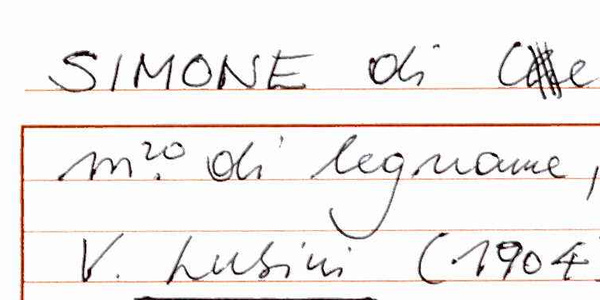 SIMONE di
m.ro di legname,
V. Lusini (1904)